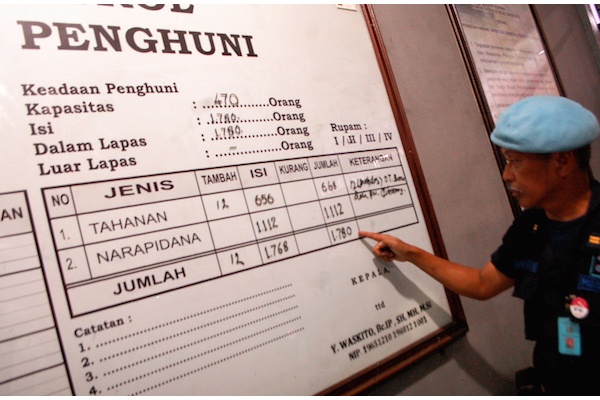 PENGHUNI
Keadaan Penghuni
Kapasitas : ...470.........Orang
Isi : ...1.780.........Orang
Dalam Lapas : ...1.780.........Orang
Luar Lapas : ...–.........Orang
Rupam :
I / II / III / IV
NO JENIS TAMBAH ISI KURANG JUMLAH KETERANGAN
1. TAHANAN 12 656 668
2. NARAPIDANA 1.112 1.112
JUMLAH 12 1.768 1.780
AN
Catatan :
1.
2.
3.
4.
KEPALA
ttd
Y. WASKITO, Bc.IP, SH, MH, M.Si